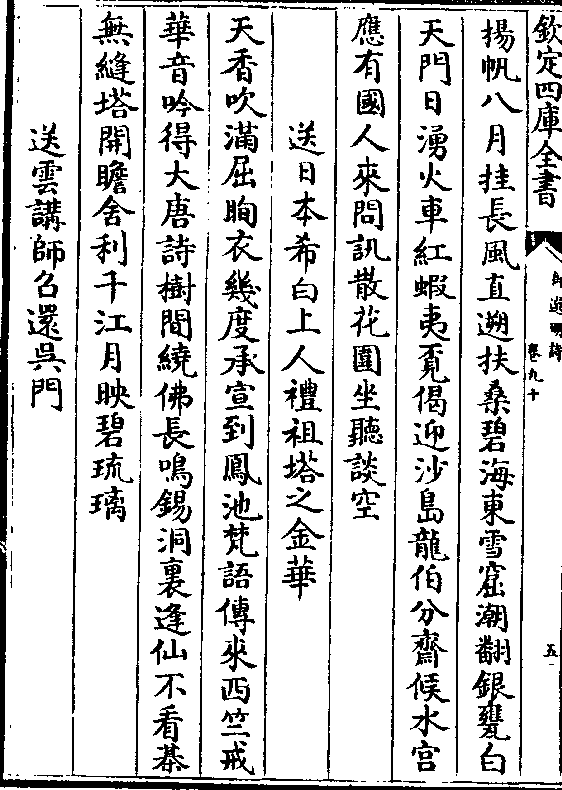 欽定四庫全書
御選明詩
卷九十
五
揚帆八月挂長風直遡扶桑碧海東雪窟潮翻銀甕白
天門日湧火車紅蝦夷覔偈迎沙島龍伯分齋候水宫
應有國人來問訊散花圍坐聽談空
送日本希白上人禮祖塔之金華
天香吹滿屈眴衣幾度承宣到鳳池梵語傳來西竺戒
華音吟得大唐詩樹間繞佛長鳴錫洞裏逢仙不看棊
無縫塔開瞻舍利千江月映碧琉璃
送雲講師召還吳門